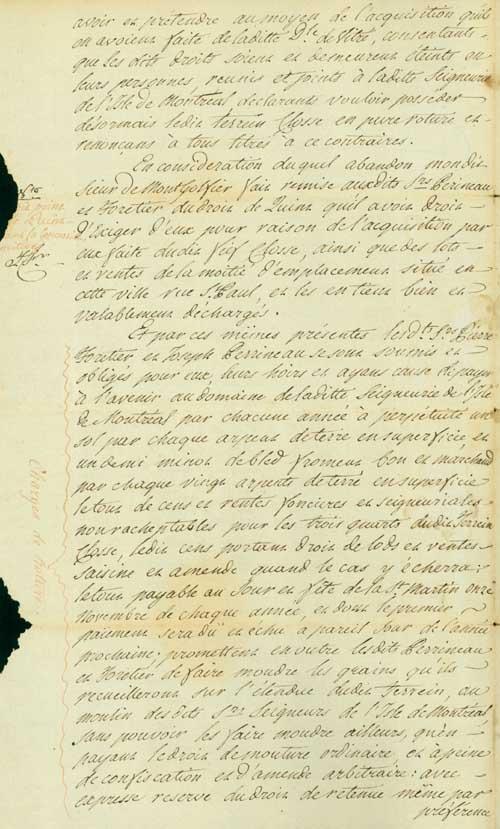 avoir et pretendre au moyen de l'acquisition qu'ils
en avoient faite de laditte Dlle de Vitré, consentants
que les dits droits soient et demeurent éteints en
leurs personnes, reunis et joints à ladite Seigneurie
de l'Isle de Montreal declarants vouloir posseder
désormais ledit terrein Closse en pure roture et
renonçans à tous titres à ce contraires.
En consideration duquel abandon mondit
Sieur de Montgolfier fait remise auxdits Srs Perineau
et Foretier du droit de Quint qu'il avoit droit
d'Exiger d'eux pour raison de l'acquisition par
eux faite dudit fief Closse, ainsi que des lots
et ventes de la moitié d'emplacement situé en
cette ville rue St Paul, et les en tient bien et
valablement déchargés.
Et par ces mêmes présentes lesdts Srs Pierre
Foretier et Joseph Perrineau se sont soumis et
obligés pour eux, leurs hoirs et ayans cause de payer
à l'avenir au domaine de laditte Seigneurie de l'Isle
de Montréal par chacune année à perpétuité un
sol par chaque arpent de terre en superficie et
un demi minot de bled froment bon et marchand
par chaque vingt arpents de terre en superficie
le tout de cens et rentes foncieres et seigneuriales
non rachetables pour les trois quarts dudit Terrein
Closse, ledit cens portant droit de lods et ventes
saisine et amende quand le cas y écherrait
le tout payable au Jour et fête de la St Martin onze
Novembre de chaque année, et dont le premier
paiement sera dû et échu à pareil Jour de l'année
prochaine: promettent en outre lesdits Perrineau
et Foretier de faire moudre les grains qu'ils
recueilleront sur l'étendue dudit Terrein, au
moulin des dits Srs Seigneurs de l'Isle de Montréal
sans pouvoir les faire moudre ailleurs, qu'en
payant le droit de mouture ordinaire et à peine
de confiscation et d'amende arbitraire: avec
expresse reserve du droit de retenue même par
préférence
Charges de